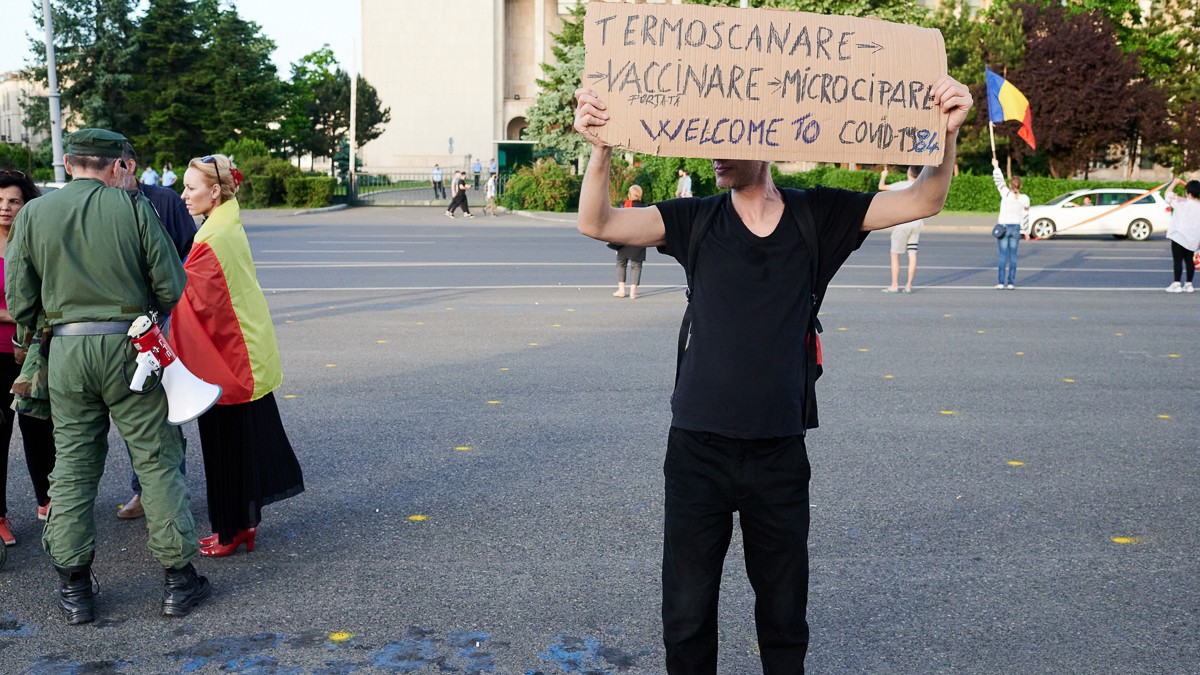 TERMOSCANARE→
→VACCINARE→MICROCIPARE
FORȚATĂ
WELCOME TO COVID-1984